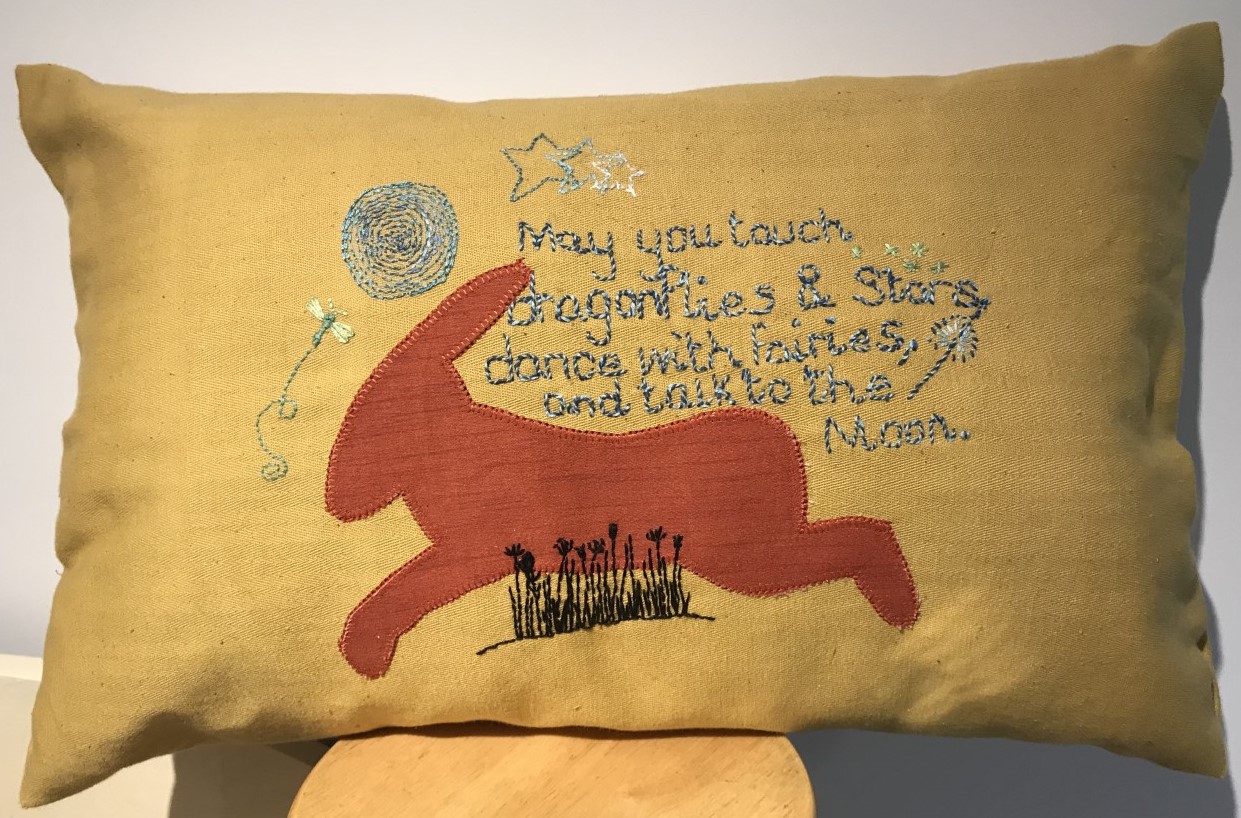 May you touch
dragonflies & Stars,
dance with fairies,
and talk to the
Moon.